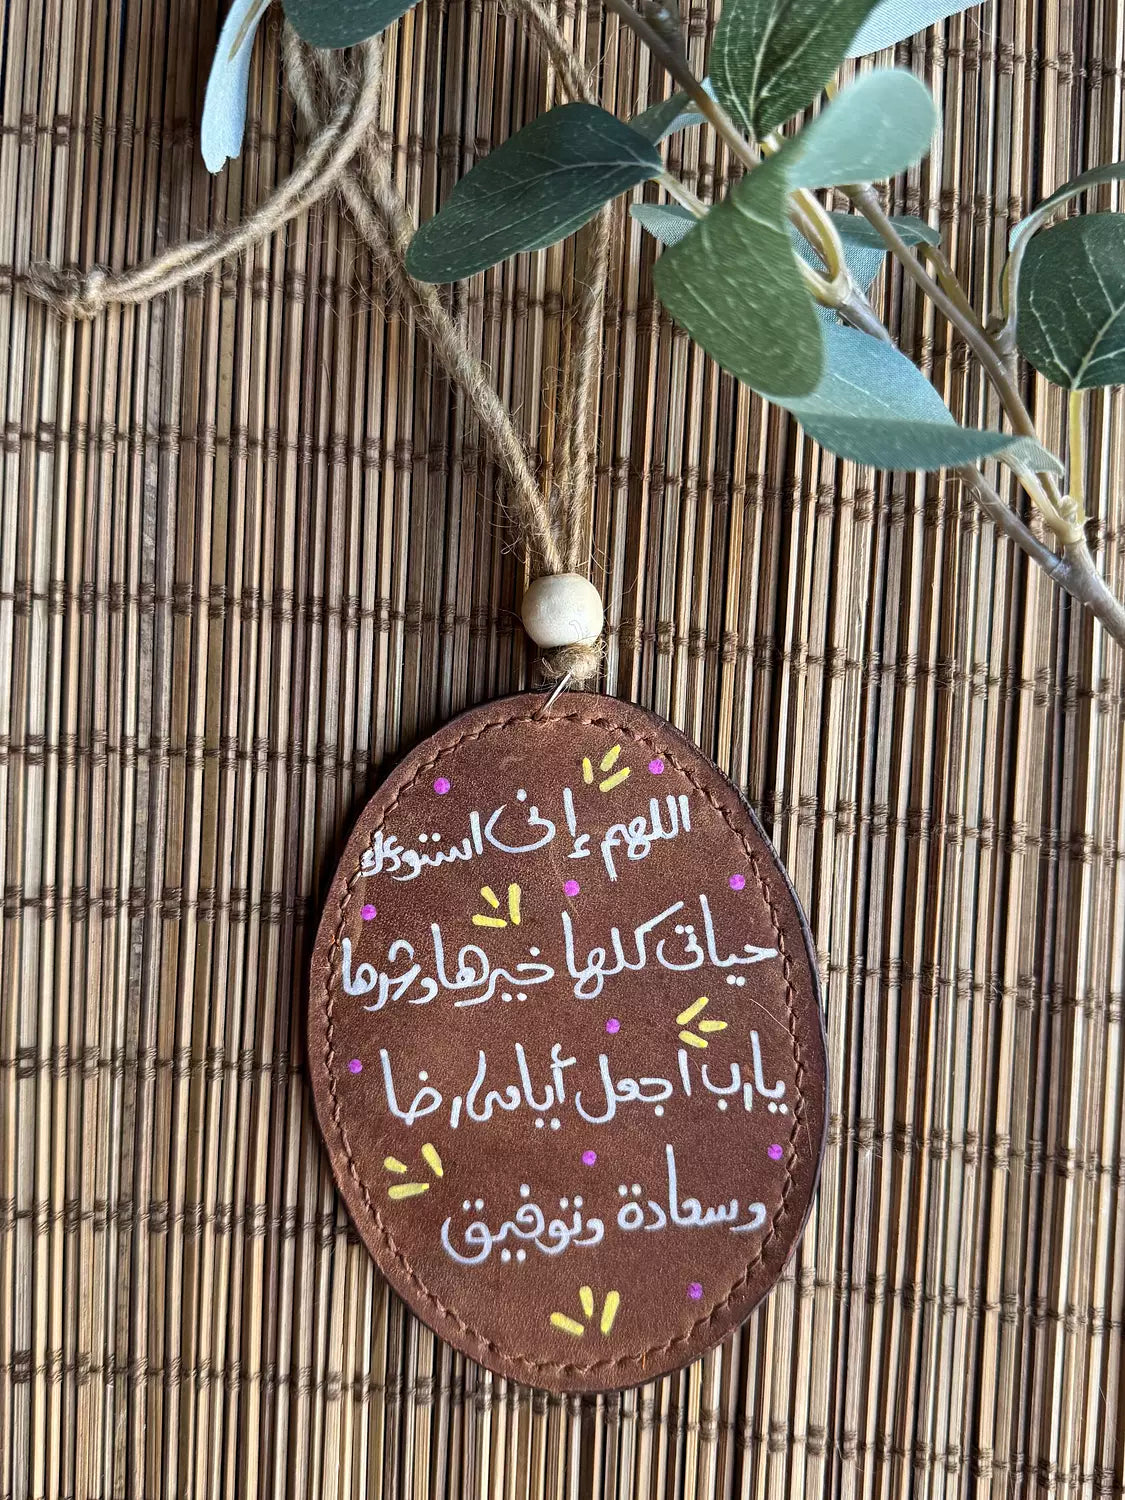 اللهم إنى استودعك
حياتى كلها خيرها وشرها
يارب اجعل أيامى رضا
وسعادة وتوفيق